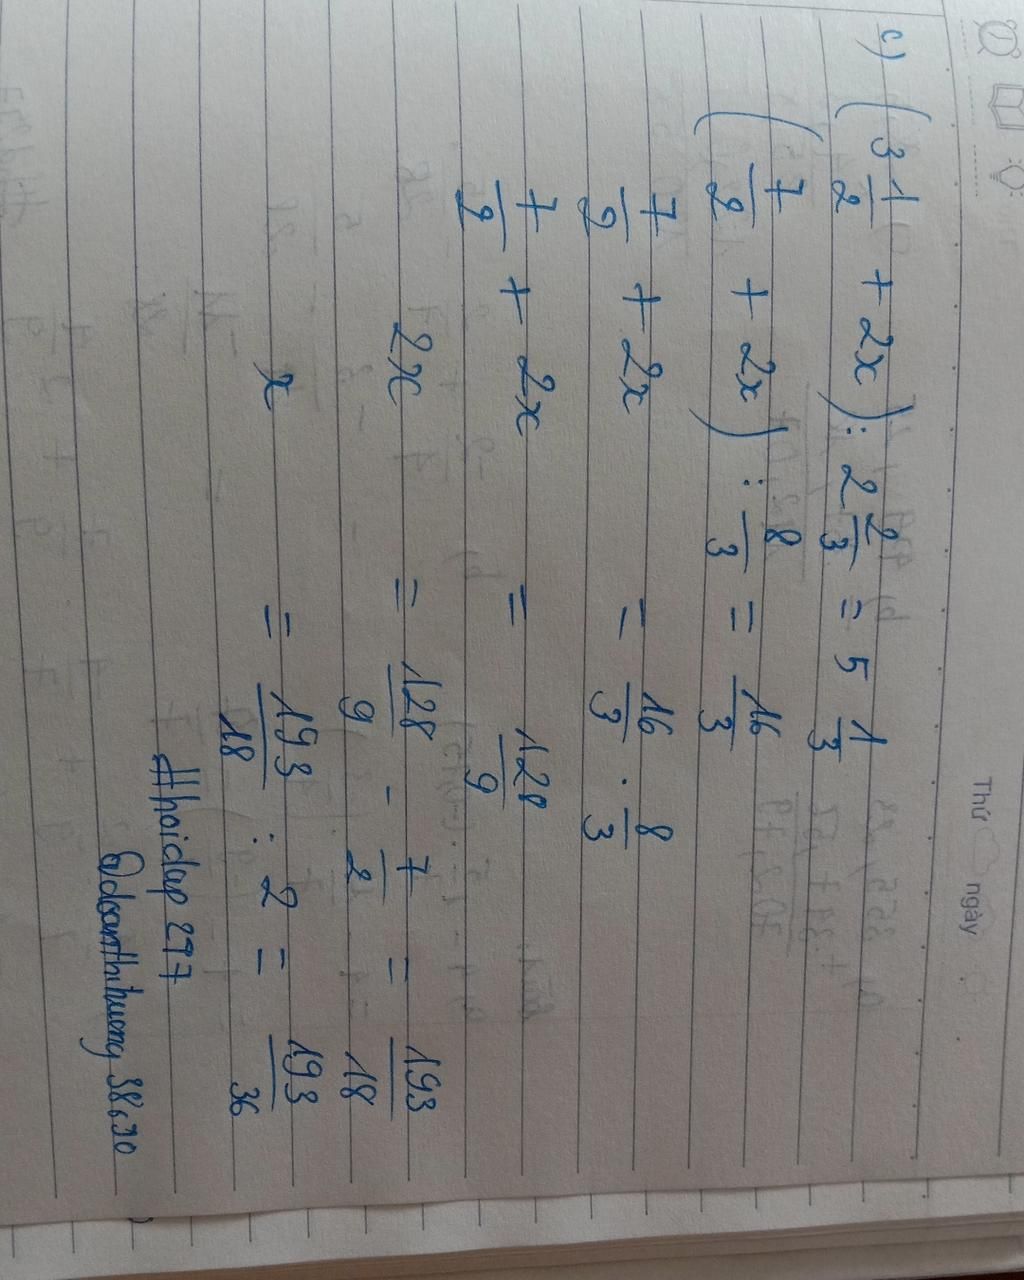 Thứ ngày
c) (3 1/2 + 2x) : 2 2/3 = 5 1/3
(7/2 + 2x) : 8/3 = 16/3
7/2 + 2x = 16/3 . 8/3
7/2 + 2x = 128/9
2x = 128/9 - 7/2 = 193/18
x = 193/18 : 2 = 193/36
#hoidap 297